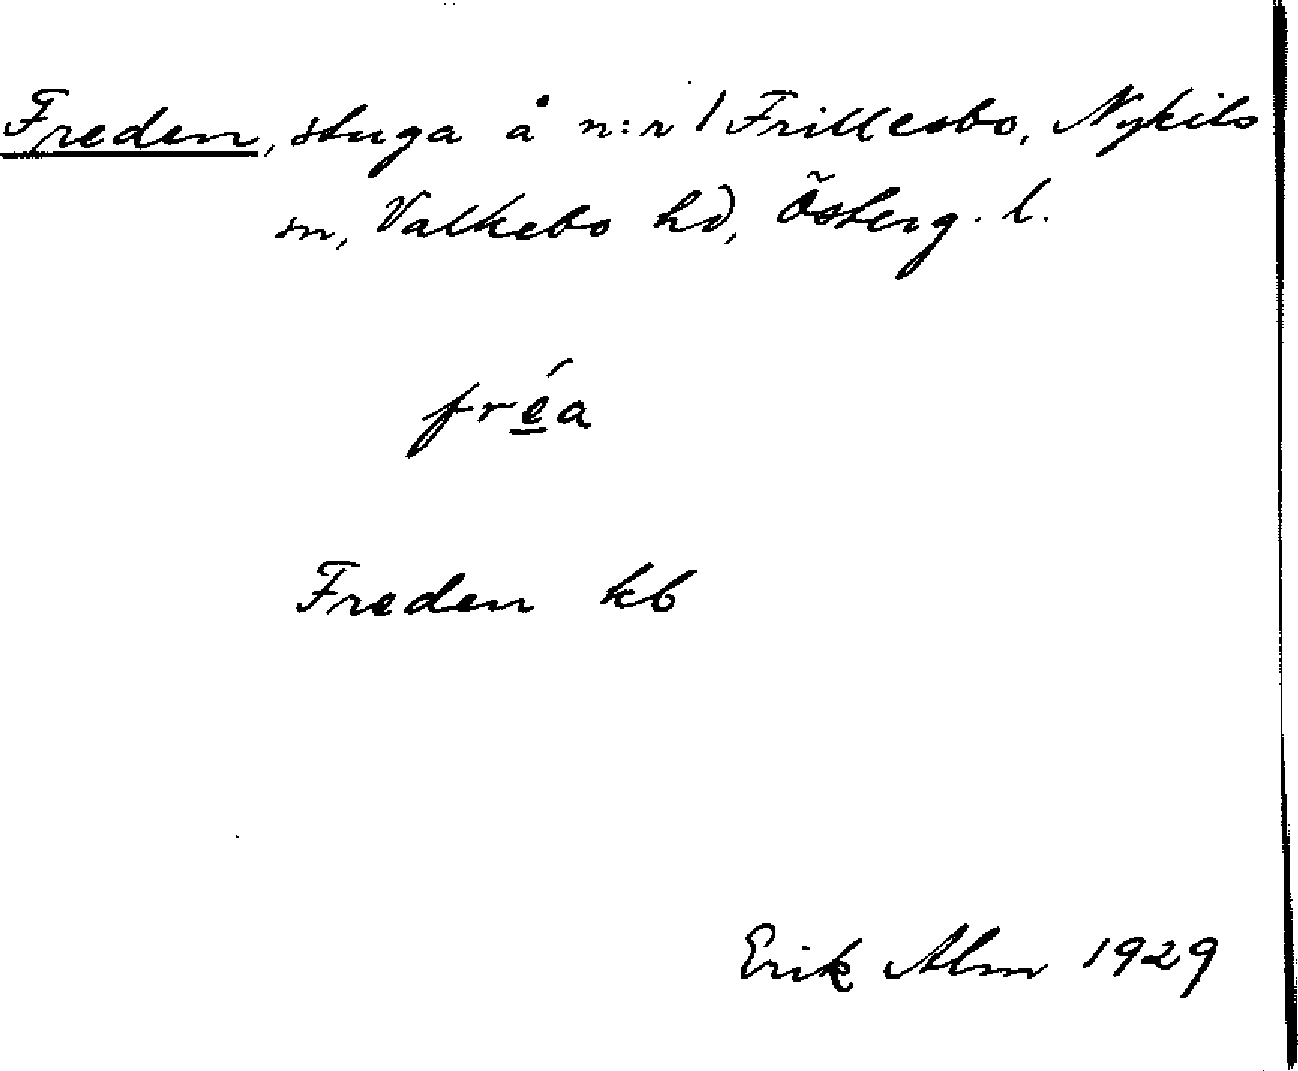 Freden, stuga å n:r 1 Frillesbo, Nykils
sn, Valkebo hd, Österg. l.
fré̲a
Freden kb
Erik Alm 1929